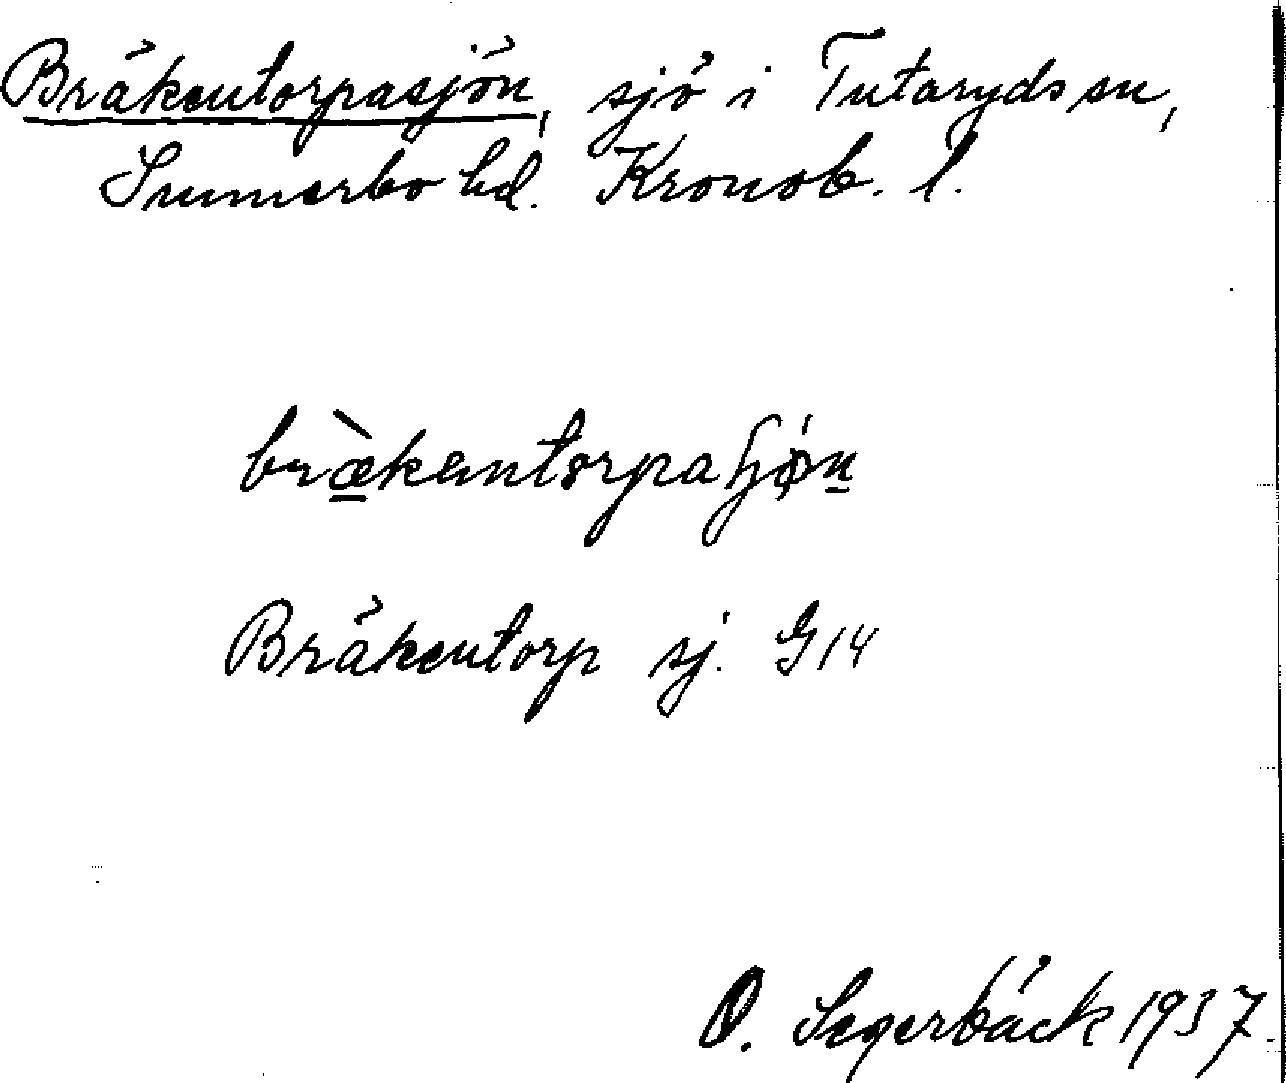 Bräkentorpasjön, sjö i Tutaryds sn,
Sunnerbo hd. Kronob. l.
bræ̀kentorpa ɧǿn
Bräkentorp sj. G14
O. Segerbäck 1937